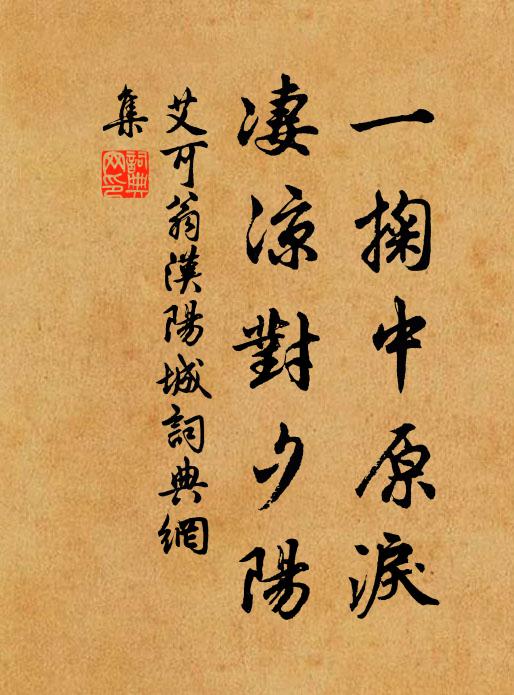 一掬中原淚
淒涼對夕陽
艾可翁漢陽城詞典網
集
詞典
網印